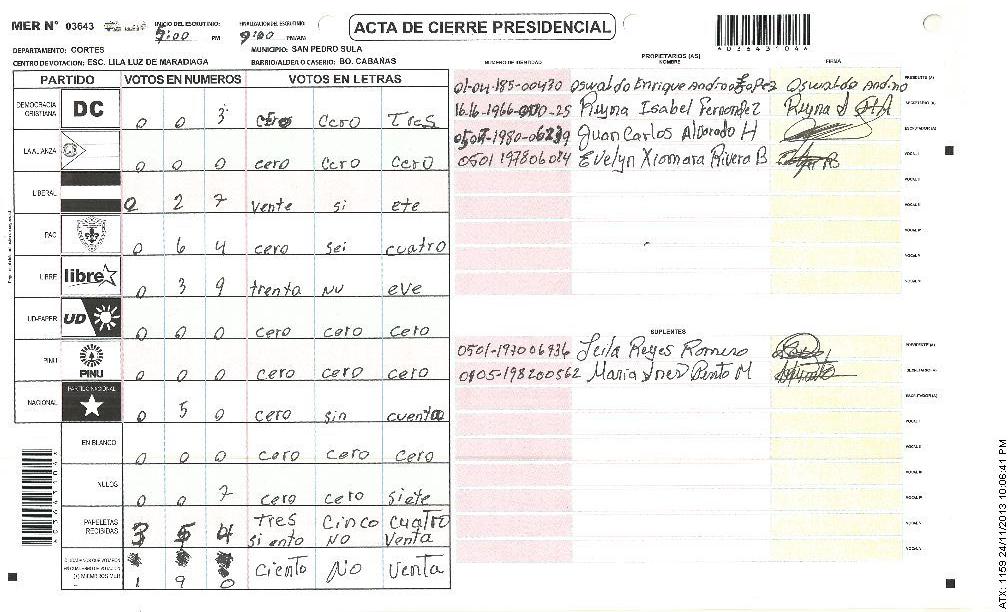 MER N° 03643 INICIO DEL ESCRUTINIO: 5:00 PM FINALIZACION DEL ESCRUTINIO: 9:00 PM/AM ACTA DE CIERRE PRESIDENCIAL A036431044
DEPARTAMENTO: CORTES MUNICIPIO: SAN PEDRO SULA
CENTRO DE VOTACION: ESC. LILA LUZ DE MARADIAGA BARRIO/ALDEA O CASERIO: BO. CABAÑAS
PARTIDO VOTOS EN NUMEROS VOTOS EN LETRAS
DEMOCRACIA CRISTIANA DC 0 0 3 cero Cero Tres
LA ALIANZA 0 0 0 cero Cero Cero
LIBERAL 0 2 7 vente si ete
PAC 0 6 4 cero sei cuatro
LIBRE libre 0 3 9 trenta nu eve
UD-FAPER UD 0 0 0 cero cero cero
PINU PINU 0 0 0 cero cero cero
NACIONAL PARTIDO NACIONAL 0 5 0 cero sin cuenta
EN BLANCO 0 0 0 cero cero cero
NULOS 0 0 7 cero cero siete
PAPELETAS RECIBIDAS 3 5 4 Tres Cinco Cuatro
siento No Venta
1 9 0 Ciento No Venta
PROPIETARIOS (AS)
NUMERO DE IDENTIDAD NOMBRE FIRMA
Oswaldo Enrique Andino Oswaldo Andino PRESIDENTE (A)
Reyna Isabel Fernandez Reyna SECRETARIO (A)
Juan Carlos Alvarado H ESCRUTADOR (A)
0501 197806084 Evelyn Xiomara Rivera B VOCAL I
VOCAL II
VOCAL III
VOCAL IV
VOCAL V
SUPLENTES
0501-197006936 Leila Reyes Romero PRESIDENTE (A)
0405-198200562 Maria Ines Pinto M SECRETARIO (A)
ESCRUTADOR (A)
VOCAL I
VOCAL II
VOCAL III
VOCAL IV
VOCAL V
ATX: 1159 24/11/2013 10:06:41 PM